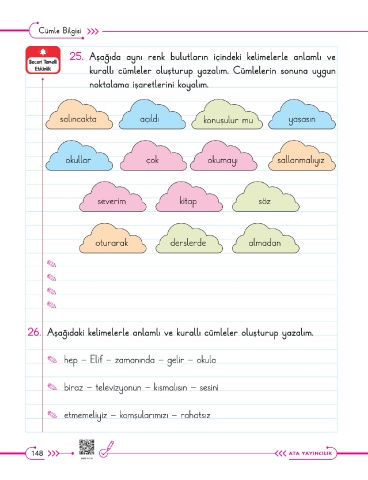 Cümle Bilgisi
Beceri Temelli
Etkinlik
25. Aşağıda aynı renk bulutların içindeki kelimelerle anlamlı ve
kurallı cümleler oluşturup yazalım. Cümlelerin sonuna uygun
noktalama işaretlerini koyalım.
salıncakta açıldı konuşulur mu yaşasın
okullar çok okumayı sallanmalıyız
severim kitap söz
oturarak derslerde almadan
26. Aşağıdaki kelimelerle anlamlı ve kurallı cümleler oluşturup yazalım.
hep – Elif – zamanında – gelir – okula
biraz – televizyonun – kısmalısın – sesini
etmemeliyiz – komşularımızı – rahatsız
148
ATA YAYINCILIK